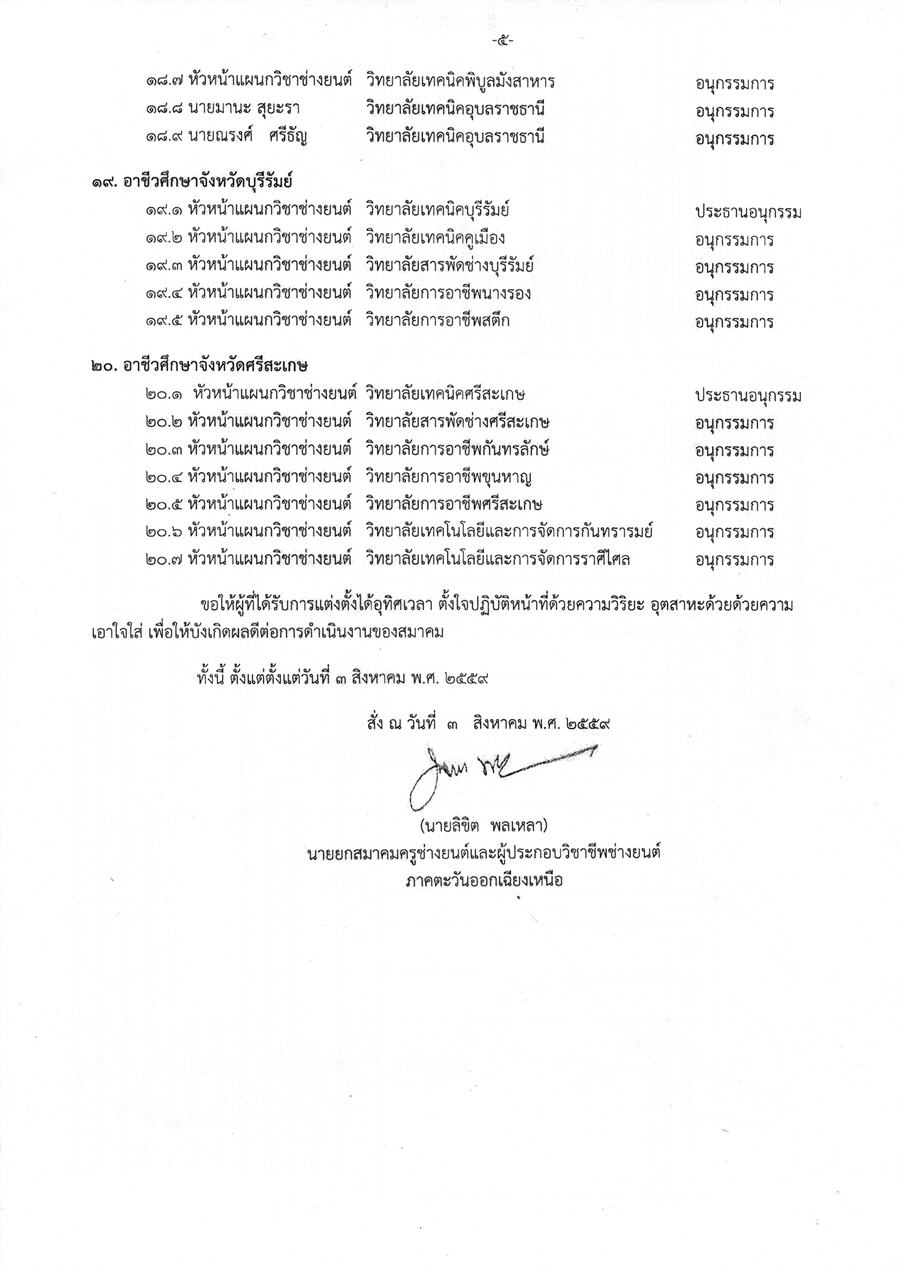 -๕-
๑๘.๗ หัวหน้าแผนกวิชาช่างยนต์ วิทยาลัยเทคนิคพิบูลมังสาหาร อนุกรรมการ
๑๘.๘ นายมานะ สุยะรา วิทยาลัยเทคนิคอุบลราชธานี อนุกรรมการ
๑๘.๙ นายณรงค์ ศรีธัญ วิทยาลัยเทคนิคอุบลราชธานี อนุกรรมการ
๑๙. อาชีวศึกษาจังหวัดบุรีรัมย์
๑๙.๑ หัวหน้าแผนกวิชาช่างยนต์ วิทยาลัยเทคนิคบุรีรัมย์ ประธานอนุกรรม
๑๙.๒ หัวหน้าแผนกวิชาช่างยนต์ วิทยาลัยเทคนิคคูเมือง อนุกรรมการ
๑๙.๓ หัวหน้าแผนกวิชาช่างยนต์ วิทยาลัยสารพัดช่างบุรีรัมย์ อนุกรรมการ
๑๙.๔ หัวหน้าแผนกวิชาช่างยนต์ วิทยาลัยการอาชีพนางรอง อนุกรรมการ
๑๙.๕ หัวหน้าแผนกวิชาช่างยนต์ วิทยาลัยการอาชีพสตึก อนุกรรมการ
๒๐. อาชีวศึกษาจังหวัดศรีสะเกษ
๒๐.๑ หัวหน้าแผนกวิชาช่างยนต์ วิทยาลัยเทคนิคศรีสะเกษ ประธานอนุกรรม
๒๐.๒ หัวหน้าแผนกวิชาช่างยนต์ วิทยาลัยสารพัดช่างศรีสะเกษ อนุกรรมการ
๒๐.๓ หัวหน้าแผนกวิชาช่างยนต์ วิทยาลัยการอาชีพกันทรลักษ์ อนุกรรมการ
๒๐.๔ หัวหน้าแผนกวิชาช่างยนต์ วิทยาลัยการอาชีพขุนหาญ อนุกรรมการ
๒๐.๕ หัวหน้าแผนกวิชาช่างยนต์ วิทยาลัยการอาชีพศรีสะเกษ อนุกรรมการ
๒๐.๖ หัวหน้าแผนกวิชาช่างยนต์ วิทยาลัยเทคโนโลยีและการจัดการกันทรารมย์ อนุกรรมการ
๒๐.๗ หัวหน้าแผนกวิชาช่างยนต์ วิทยาลัยเทคโนโลยีและการจัดการราศีไศล อนุกรรมการ
ขอให้ผู้ที่ได้รับการแต่งตั้งได้อุทิศเวลา ตั้งใจปฏิบัติหน้าที่ด้วยความวิริยะ อุตสาหะด้วยด้วยความ
เอาใจใส่ เพื่อให้บังเกิดผลดีต่อการดำเนินงานของสมาคม
ทั้งนี้ ตั้งแต่ตั้งแต่วันที่ ๓ สิงหาคม พ.ศ. ๒๕๕๙
สั่ง ณ วันที่ ๓ สิงหาคม พ.ศ. ๒๕๕๙
(นายลิขิต พลเหลา)
นายยกสมาคมครูช่างยนต์และผู้ประกอบวิชาชีพช่างยนต์
ภาคตะวันออกเฉียงเหนือ